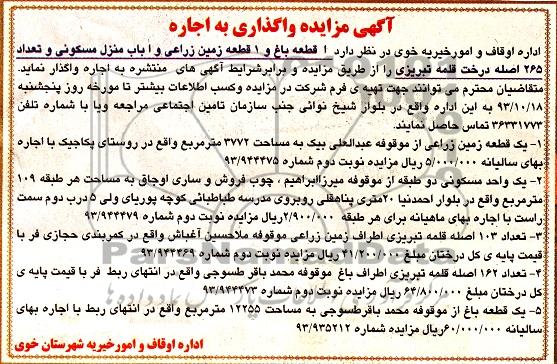 آگهی مزایده واگذاری به اجاره
اداره اوقاف و امور خیریه خوی در نظر دارد ۱ قطعه باغ و ۱ قطعه زمین زراعی و ۱ باب منزل مسکونی و تعداد
۲۶۵ اصله درخت قلمه تبریزی را از طریق مزایده و برابر شرایط آگهی های منتشره به اجاره واگذار نماید.
متقاضیان محترم می توانند جهت تهیه ی فرم شرکت در مزایده وکسب اطلاعات بیشتر تا مورخه روز پنجشنبه
۹۳/۱۰/۱۸ به این اداره واقع در بلوار شیخ نوائی جنب سازمان تامین اجتماعی مراجعه ویا با شماره تلفن
۳۶۳۳۱۷۷۳ تماس حاصل نمایند.
۱- یک قطعه زمین زراعی از موقوفه عبدالعلی بیک به مساحت ۳۷۷۲ مترمربع واقع در روستای پکاجیک با اجاره
بهای سالیانه ۵/۰۰۰/۰۰۰ ریال مزایده نوبت دوم شماره ۹۳/۹۴۴۴۷۵
۲- یک واحد مسکونی دو طبقه از موقوفه میرزاابراهیم ، چوب فروش و ساری اوجاق به مساحت هر طبقه ۱۰۹
مترمربع واقع در بلوار احمدنیا ۲۰متری پناهقلی روبروی مدرسه طباطبائی کوچه پوریای ولی ۵ درب دوم سمت
راست با اجاره بهای ماهیانه برای هر طبقه ۲/۹۰۰/۰۰۰ریال مزایده نوبت دوم شماره ۹۳/۹۴۴۴۷۹
۳- تعداد ۱۰۳ اصله قلمه تبریزی اطراف زمین زراعی موقوفه ملاحسین آغباش واقع در کمربندی حجازی فر با
قیمت پایه ی کل درختان مبلغ ۴۱/۲۰۰/۰۰۰ ریال مزایده نوبت دوم شماره ۹۳/۹۴۴۴۶۹
۴- تعداد ۱۶۲ اصله قلمه تبریزی اطراف باغ موقوفه محمد باقر طسوجی واقع در انتهای ربط فر با قیمت پایه ی
کل درختان مبلغ ۶۴/۸۰۰/۰۰۰ ریال مزایده نوبت دوم شماره ۹۳/۹۴۴۴۷۳
۵- یک قطعه باغ از موقوفه محمد باقرطسوجی به مساحت ۱۲۲۵۵ مترمربع واقع در انتهای ربط با اجاره بهای
سالیانه ۶۰/۰۰۰/۰۰۰ریال مزایده شماره ۹۳/۹۳۵۲۱۲
اداره اوقاف و امور خیریه شهرستان خوی